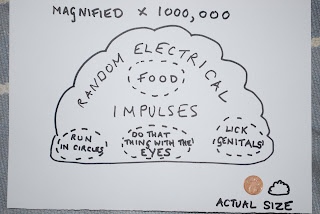 MAGNIFIED × 1000,000
RANDOM ELECTRICAL
FOOD
IMPULSES
RUN
IN CIRCLES
DO THAT
THING WITH THE
EYES
LICK
GENITALS
ACTUAL SIZE